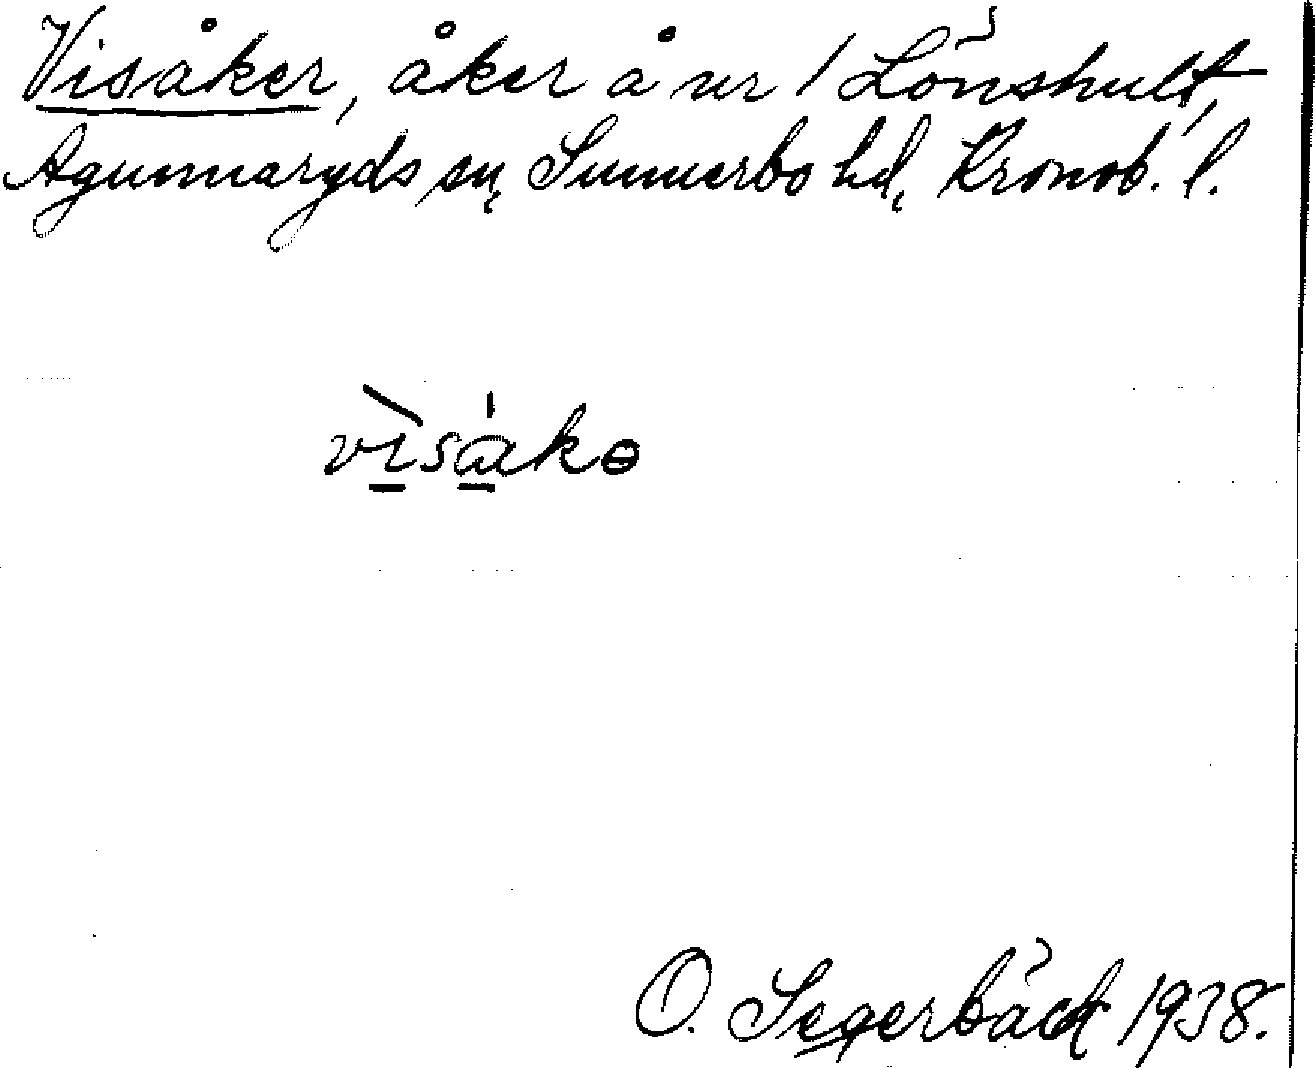 Visåker, åker å nr 1 Lönshult,
Agunnaryds sn, Sunnerbo hd, Kronob. l.
vìsákɵ
O. Segerbäck 1938.